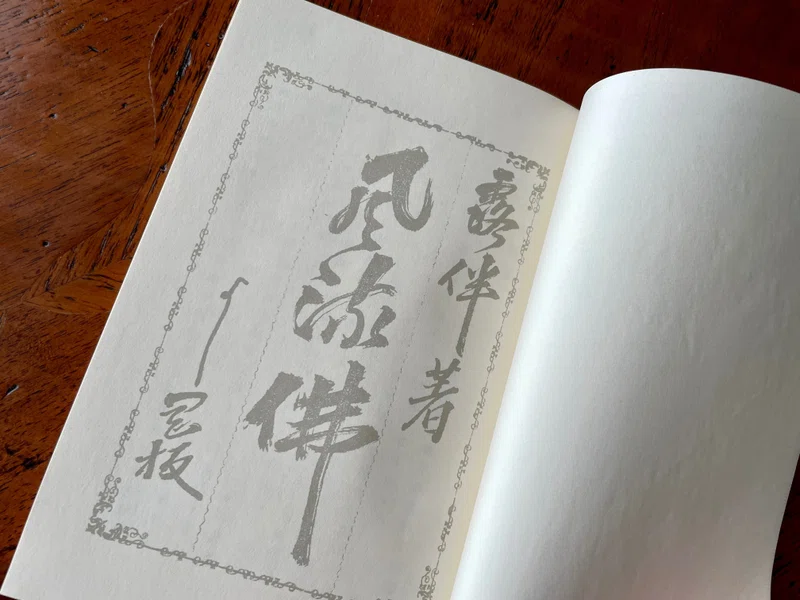 露伴著
風流佛
よし岡板